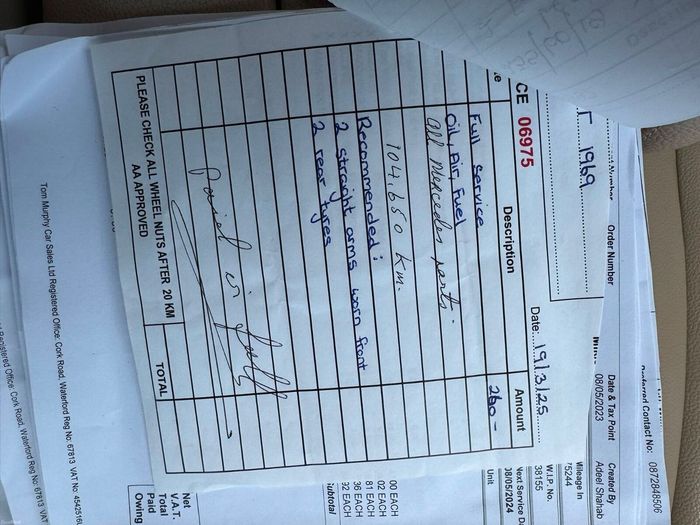 CE 06975
Date: 19/3/25
Description
Amount
Full service
260 -
Oil, Air, Fuel
all Mercedes parts.
104,650 km.
Recommended:
2 straight arms worn front
2 rear tyres
Paid in full
TOTAL
PLEASE CHECK ALL WHEEL NUTS AFTER 20 KM
AA APPROVED
Contact No: 0872848506
Order Number
Date & Tax Point
Created By
1969
08/05/2023
Adeel Shahab
Mileage In
75244
W.I.P. No.
38155
Next Service D
08/05/2024
Unit
00 EACH
02 EACH
81 EACH
36 EACH
32 EACH
Subtotal
Net
V.A.T.
Total
Paid
Owing
Tom Murphy Car Sales Ltd Registered Office: Cork Road, Waterford Reg No: 67813 VAT No: 454251
Registered Office: Cork Road, Waterford Reg No: 67813 VAT